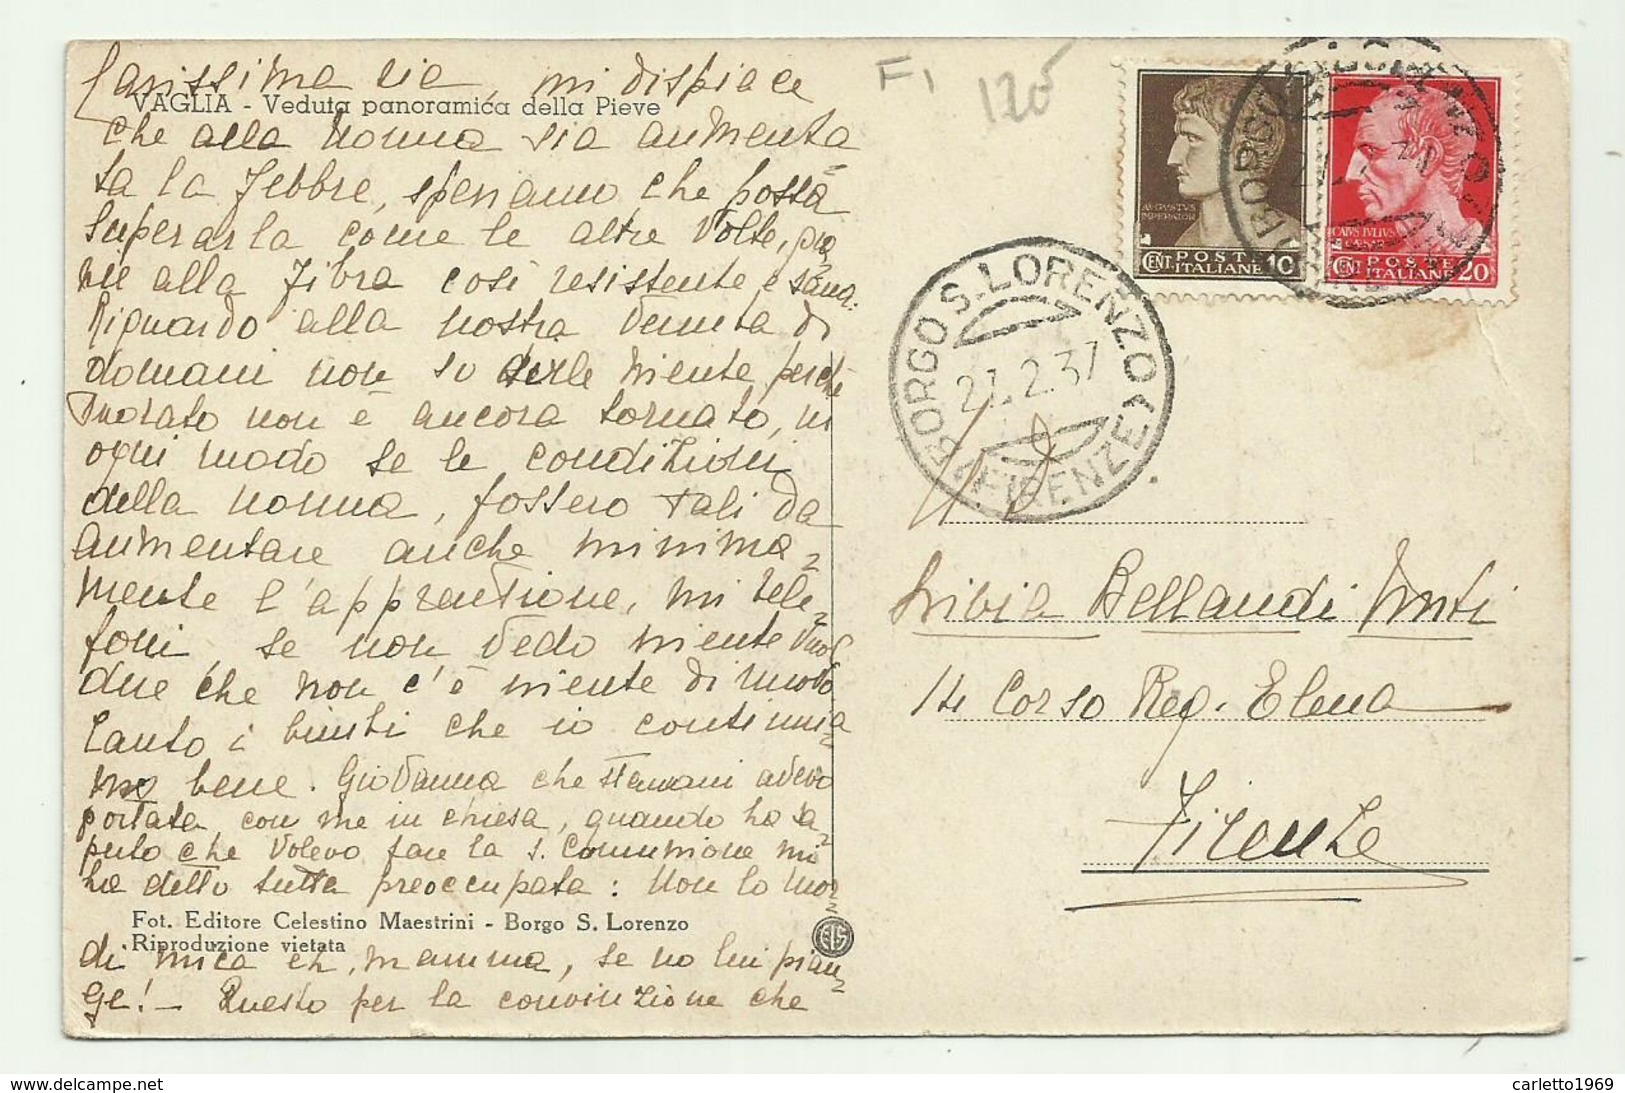 Carissima zia, mi dispiace
VAGLIA - Veduta panoramica della Pieve
che alla nonna sia aumenta=
ta la febbre, speriamo che possa
superarla come le altre volte, gra=
alla fibra così resistente e sana.
Riguardo alla nostra venuta di
domani non so dirle niente perchè
Morato non è ancora tornato, in
ogni modo se le condizioni
della nonna, fossero tali da
aumentare anche minima=
mente l'apprensione, mi tele=
foni, se non vedo niente vuol
dire che non c'è niente di nuovo
Tanto i bimbi che io continuia=
mo bene. Giovanna che stamani avevo
portata con me in chiesa, quando ha sa=
puto che volevo fare la S. Comunione mi
ha detto tutta preoccupata: Non lo mor=
Fot. Editore Celestino Maestrini - Borgo S. Lorenzo
Riproduzione vietata
di mica eh, mamma, se no lui pian=
ge! - Questo per la convinzione che
EIS
F1
120
AVGVSTVS
IMPERATOR
POSTE
CENT. ITALIANE 10
CAIVS IVLIVS
CAESAR
POSTE
CENT. ITALIANE 20
BORGO S. LORENZO
21.2.37
FIRENZE
Livia Bellandi Conti
14 Corso Reg. Elena
Firenze
delcampe.net
carletto1969